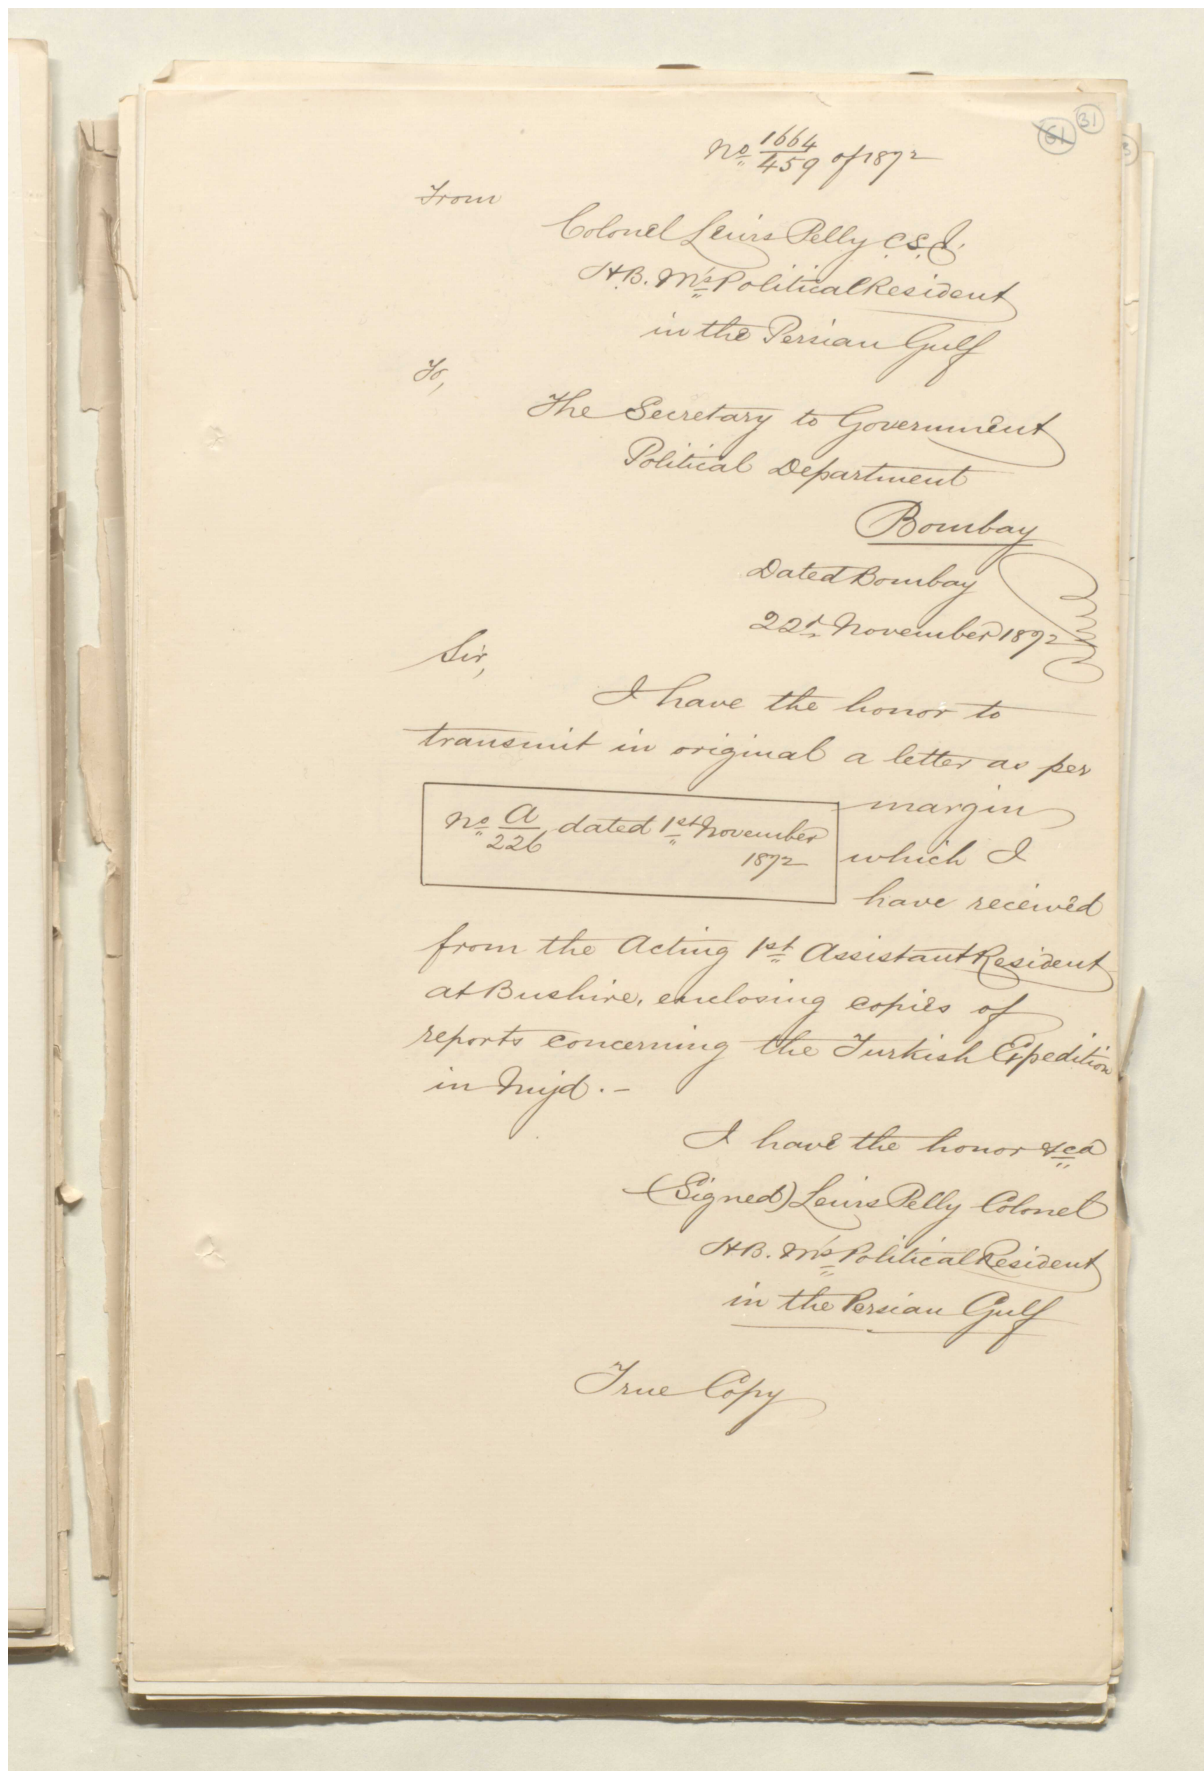 61 31
No 1664/459 of 1872
From
Colonel Lewis Pelly C.S.I.
H.B. M's Political Resident
in the Persian Gulf
To,
The Secretary to Government
Political Department
Bombay
Dated Bombay
22d November 1872
Sir,
I have the honor to
transmit in original a letter as per
margin
No A/226 dated 1st November
1872
which I
have received
from the Acting 1st Assistant Resident
at Bushire, enclosing copies of
reports concerning the Turkish Expedition
in Nijd. -
I have the honor &ca
(Signed) Lewis Pelly Colonel
H.B. M's Political Resident
in the Persian Gulf
True Copy